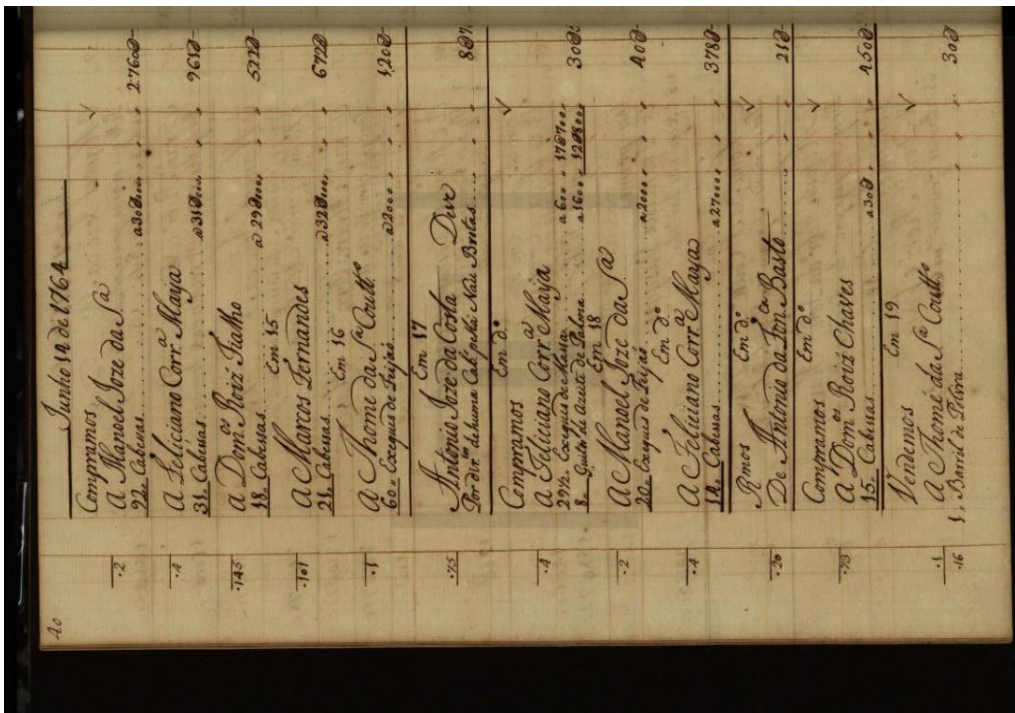 40
Junho 14 de 1764
Compramos
.2 A Manoel Joze da Sª
92.. Cabessas a 30@ 2.760@
.4 A Feliciano Corrª Maya
31.. Cabessas a 31@ 961@
.145 A Domos Roiz Fialho
18.. Cabessas a 29@ 522@
Em 15
.101 A Marcos Fernandes
21.. Cabessas a 32@ 672@
Em 16
.1 A Thome da Sª Coutto
60.. Exequis de Feijaõ a 2000 120@
Em 17
.75 Antonio Joze da Costa Deve
Em do
Compramos
.4 A Feliciano Corrª Maya
29½.. Exequis de Massa a 600 17@700
8.. de Azeite de Palma a 1600 12@800 30@
Em 18
.2 A Manoel Joze da Sª
20.. Exequis de Feijaõ a 2000 40@
Em do
.4 A Feliciano Corrª Maya
14.. Cabessas a 27000 378@
Em do
Rmos
.20 De Antonio da Fonca Basto 21@
Em do
Compramos
.73 A Domos Roiz Chaves
15.. Cabessas a 30@ 450@
Em 19
Vendemos
.1 A Thomé da Sª Coutto
.16 1.. Barril de Polvra 30@